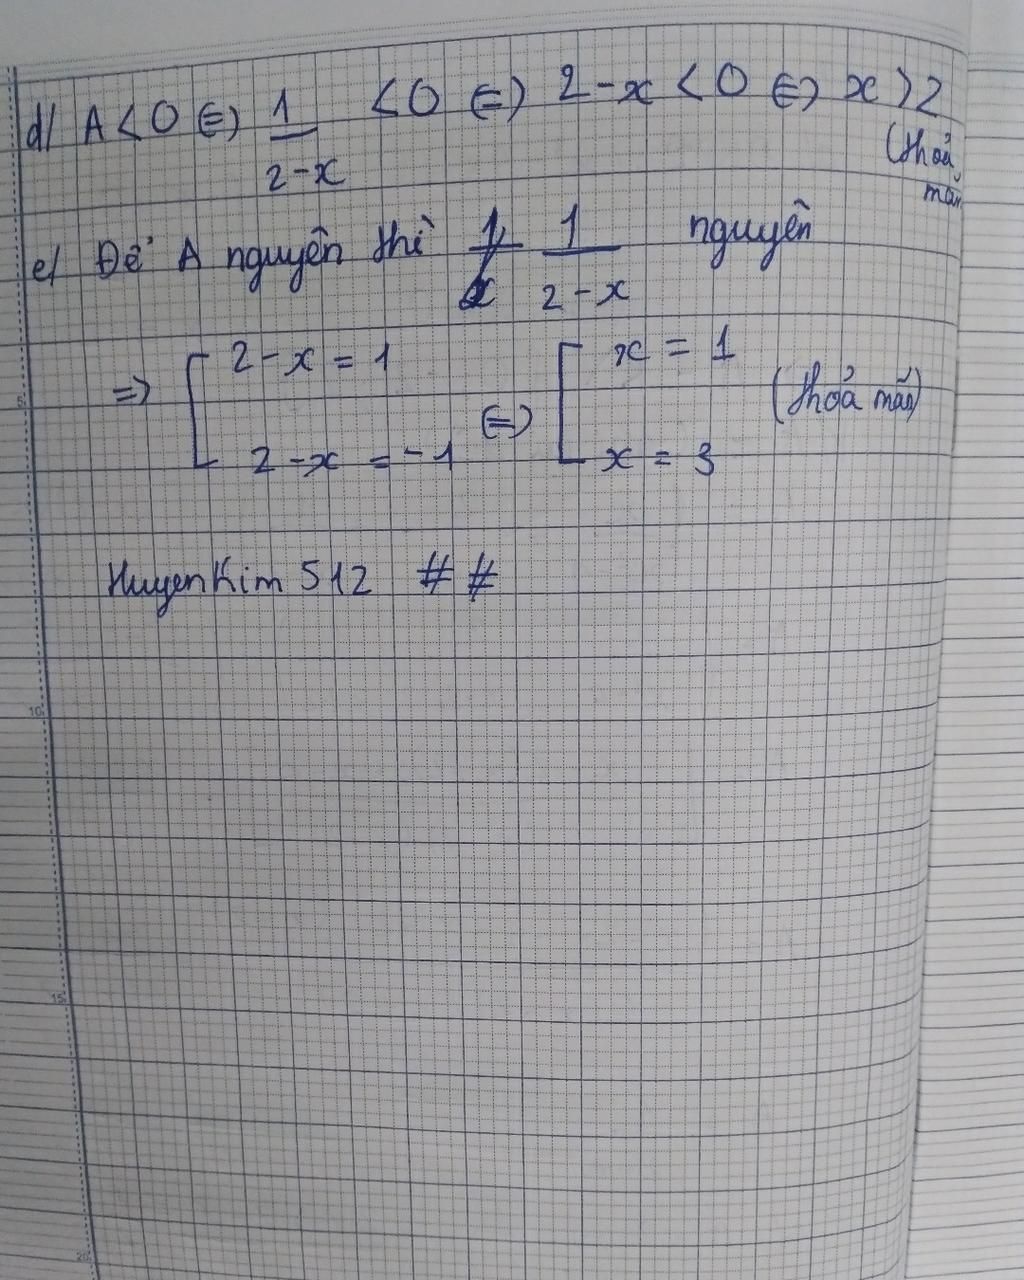 d/ A < 0 ⇔ 1/(2-x) < 0 ⇔ 2-x < 0 ⇔ x > 2
(thoả mãn
e/ Để A nguyên thì 1/(2-x) nguyên
=> [ 2-x = 1 ⇔ [ x = 1 (thoả mãn)
2-x = -1 x = 3
HuyenKim 512 # #
10
15
20